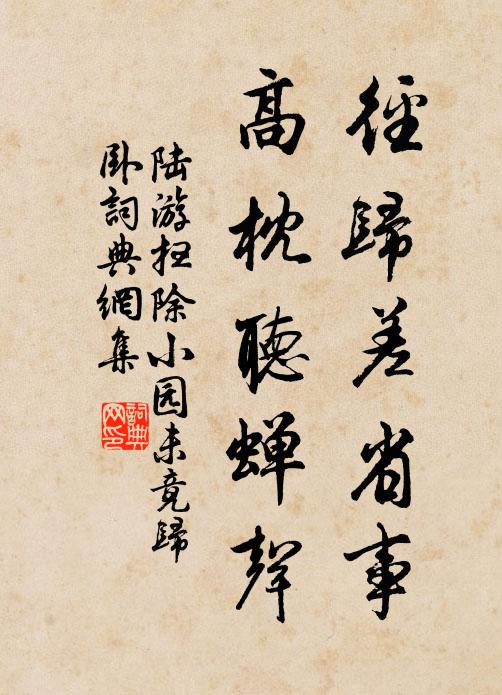 徑歸差省事
高枕聽蟬聲
陆游扫除小园未竟歸
卧詞典網集
詞典
网印